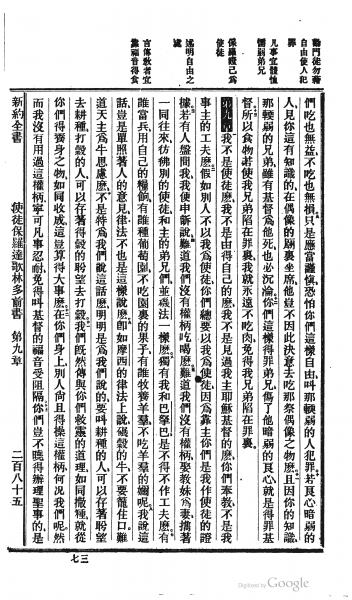 勸門徒勿藉
自由使人犯
罪
凡事宜體恤
懦弱弟兄
保羅證己為
使徒
述明自由之
處
言傳教者宜
靠福音得食
們吃也無益、不吃也無損、只是應當謹慎、恐怕你們這樣自由、叫那輭弱的人犯罪、若良心暗弱的
人、見你這有知識的、在偶像的廟裏坐席、他豈不因此決意去吃那祭偶像之物麽、且因你的知識、
那輭弱的兄弟、雖有基督為他死、也必沉淪、你們這樣得罪弟兄、傷了他暗弱的良心、就是得罪基
督、所以食物若使我兄弟陷在罪裏、我就永遠不吃肉、免得我兄弟陷在罪裏、
第九章 我不是使徒麽、我不是由得自己的麽、我不是見過我主耶穌基督的麽、你們奉教、不是我
事主的工夫麽、假如別人不以我為使徒、你們總要以我為使徒、因為靠主、你們是我作使徒的證
據、若有人盤問我、我便申訴說、難道我們沒有權柄吃喝麽、難道我們沒有權柄娶教妹為妻、攜著
一同往來、彷彿別的使徒、和主的弟兄們、並磯法一樣麽、獨有我和巴拏巴、是不得不作工夫麽、有
誰當兵、用自己的糧餉、有誰種葡萄園、不吃園裏的果子、有誰牧養羊羣、不吃羊羣的嬭呢、我說這
話、豈是單照著人的意見、律法不也是這樣說麽、即如摩西的律法上說、碾穀的牛、不要籠住口、難
道天主為牛思慮麽、不是特為我們說這話麽、明明是為我們說的、要叫耕種的人、可以存著盼望
去耕種、打穀的人、可以存著得穀的盼望去打穀、我們旣然傳與你們救靈的道理、如同撒種、就從
你們得養身之物、如同收成、這豈算得大事麽、在你們身上、別人尚且得操這權柄、何況我們呢、然
而我沒有用過這權柄、寧可凡事忍耐、免得叫基督的福音受阻隔、你們豈不曉得辦理聖事的、是
新約全書 使徒保羅達歌林多前書 第九章 二百八十五
七三
Digitized by Google